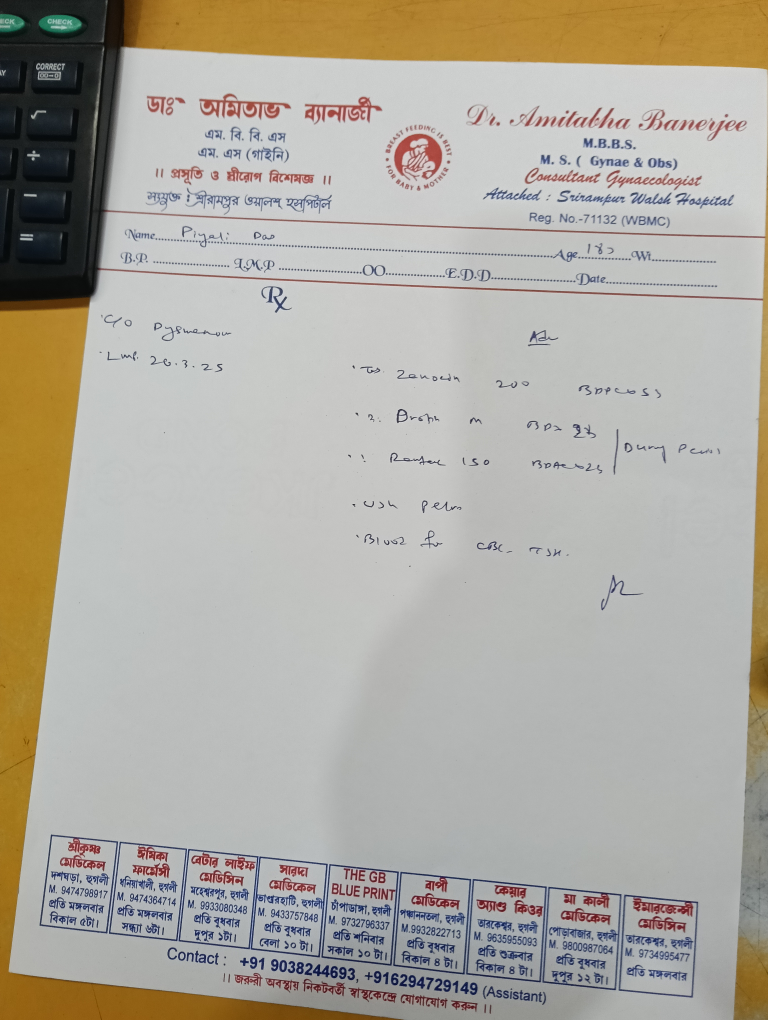 CHECK
CHECK
CORRECT
ডাঃ অমিতাভ ব্যানার্জী
এম. বি. বি. এস
এম. এস (গাইনি)
।। প্রসূতি ও স্ত্রীরোগ বিশেষজ্ঞ ।।
সংযুক্ত : শ্রীরামপুর ওয়ালশ হসপিটাল
BREAST FEEDING IS BEST
FOR BABY & MOTHER
Dr. Amitabha Banerjee
M.B.B.S.
M. S. ( Gynae & Obs)
Consultant Gynaecologist
Attached : Srirampur Walsh Hospital
Reg. No.-71132 (WBMC)
Name Piyali Das Age 18 Wt
B.P. L.M.P OO E.D.D Date
Rx
C/O Dysmenorr
Lmp. 26.3.25
Adv
Zanocin 200
Drotin M
Rantac 150
During
USG Pelvis
Blood for CBC TSH.
শ্রীকৃষ্ণ মেডিকেল
দশঘড়া, হুগলী
M. 9474798917
প্রতি মঙ্গলবার
বিকাল ৫টা।
ঈষিকা ফার্মেসী
ধনিয়াখালী, হুগলী
M. 9474364714
প্রতি মঙ্গলবার
সন্ধ্যা ৬টা।
বেটার লাইফ মেডিসিন
মহেশ্বরপুর, হুগলী
M. 9933080348
প্রতি বুধবার
দুপুর ১টা।
সারদা মেডিকেল
ভাণ্ডারহাটি, হুগলী
M. 9433757848
প্রতি বুধবার
বেলা ১০ টা।
THE GB
BLUE PRINT
চাঁপাডাঙ্গা, হুগলী
M. 9732796337
প্রতি শনিবার
সকাল ১০ টা।
বাপী মেডিকেল
পঞ্চাননতলা, হুগলী
M.9932822713
প্রতি বুধবার
বিকাল ৪ টা।
কেয়ার অ্যাণ্ড কিওর
তারকেশ্বর, হুগলী
M. 9635955093
প্রতি শুক্রবার
বিকাল ৪ টা।
মা কালী মেডিকেল
পোড়াবাজার, হুগলী
M. 9800987064
প্রতি বুধবার
দুপুর ১২ টা।
ইমারজেন্সী মেডিসিন
তারকেশ্বর, হুগলী
M. 9734995477
প্রতি মঙ্গলবার
Contact : +91 9038244693, +916294729149 (Assistant)
।। জরুরী অবস্থায় নিকটবর্তী স্বাস্থ্যকেন্দ্রে যোগাযোগ করুন ।।